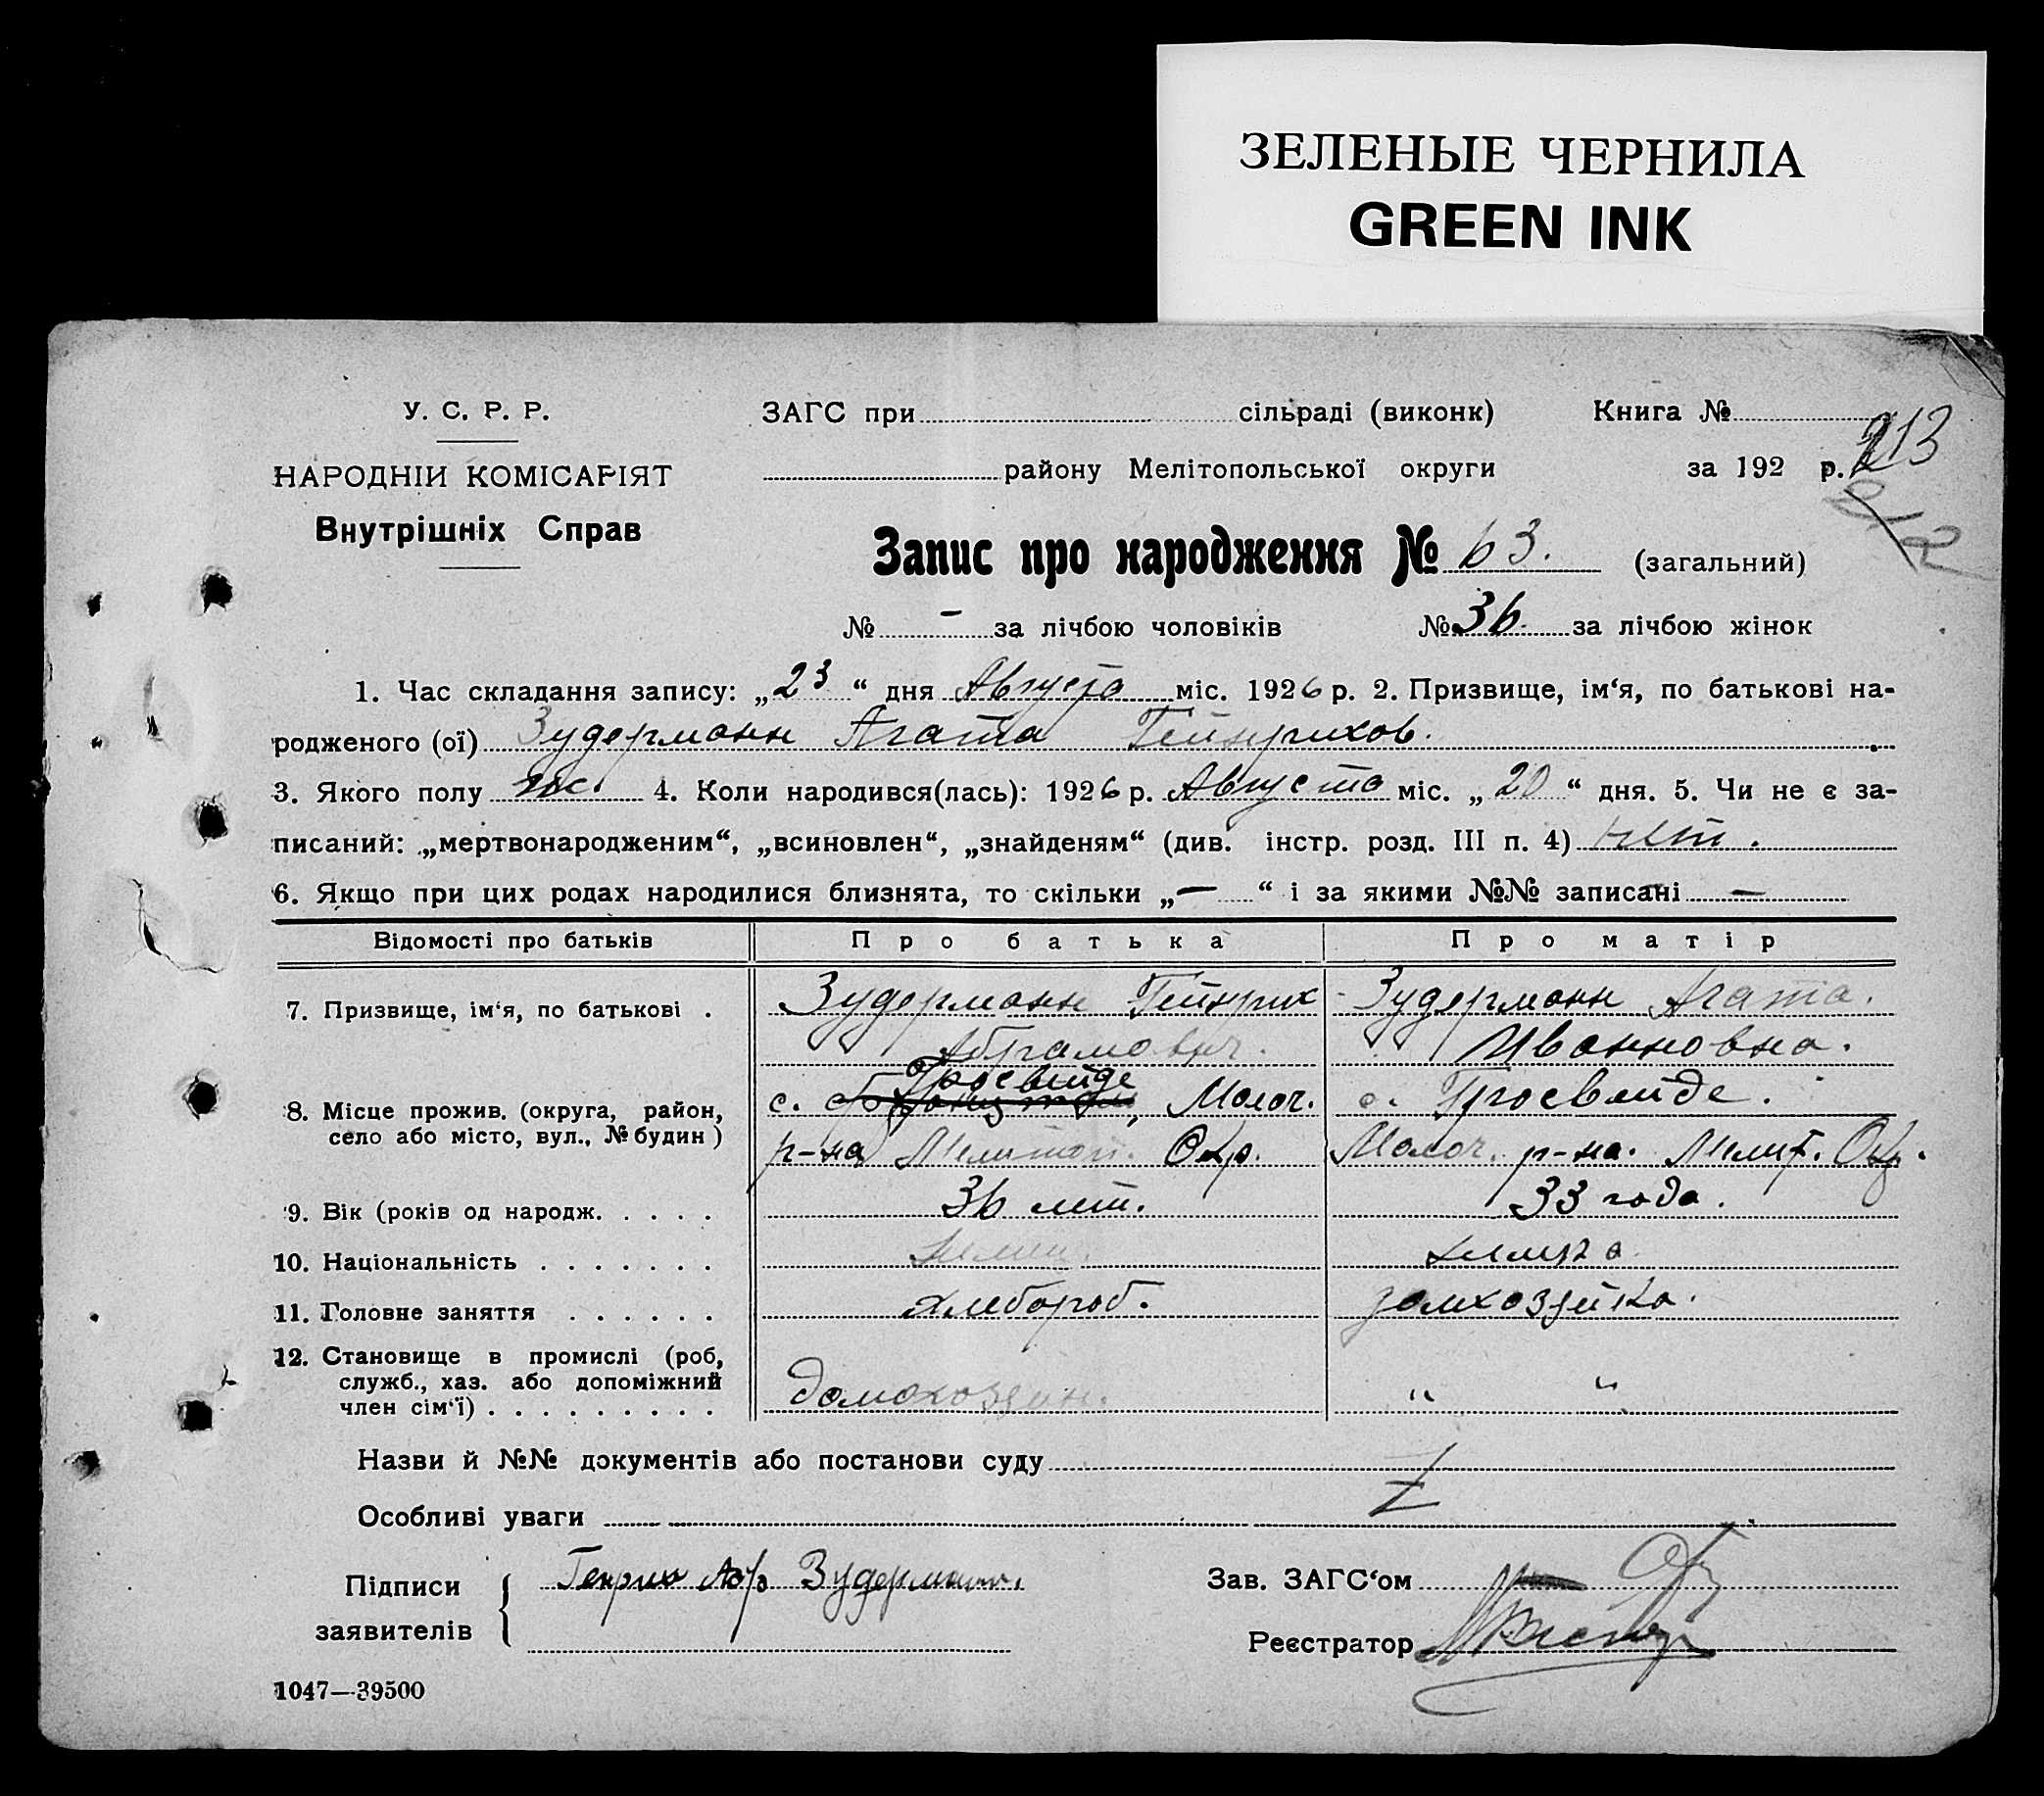 ЗЕЛЕНЫЕ ЧЕРНИЛА
GREEN INK
У. С. Р. Р.
НАРОДНІИ КОМІСАРІЯТ
Внутрішніх Справ
ЗАГС при сільраді (виконк) Книга №
району Мелітопольської округи за 192 р. 213
212
Запис про народження № 63. (загальний)
№ — за лічбою чоловіків № 36. за лічбою жінок
1. Час складання запису: „23“ дня Августа міс. 1926 р. 2. Призвище, ім‘я, по батькові на-
родженого (ої) Зудерманн Агата Гейнрихов.
3. Якого полу жс. 4. Коли народився(лась): 1926 р. Августа міс. „20“ дня. 5. Чи не є за-
писаний: „мертвонародженим“, „всиновлен“, „знайденям“ (див. інстр. розд. III п. 4) нет.
6. Якщо при цих родах народилися близнята, то скільки „—“ і за якими №№ записані —
Відомості про батьків Про батька Про матір
7. Призвище, ім‘я, по батькові . Зудерманн Гейнрих Зудерманн Агата.
Абрамович. Ивановна.
Гросвейде
8. Місце прожив. (округа, район, село або місто, вул., № будин) с. Молоч. с. Гросвейде.
р-на Мелитоп. Окр. Молоч. р-на. Мелит. Окр.
9. Вік (років од народж. . . . . 36 лет. 33 года.
10. Національність . . . . . . . немец. немка
11. Головне заняття . . . . . . хлебороб. домхозяйка.
12. Становище в промислі (роб,
служб., хаз. або допоміжний
член сім‘ї) . . . . . . . . . домохозяин. “ “
Назви й №№ документів або постанови суду
Особливі уваги
Підписи заявителів Генрих Абр Зудерманн.
Зав. ЗАГС‘ом
Реєстратор
1047—39500